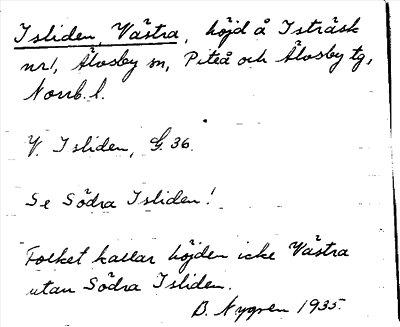 Isliden, Västra, höjd å Isträsk
nr 1, Älvsby sn, Piteå och Älvsby tg,
Norrb. l.
V. Isliden, G. 36.
Se Södra Isliden!
Folket kallar höjden icke Västra
utan Södra Isliden.
B. Nygren 1935.